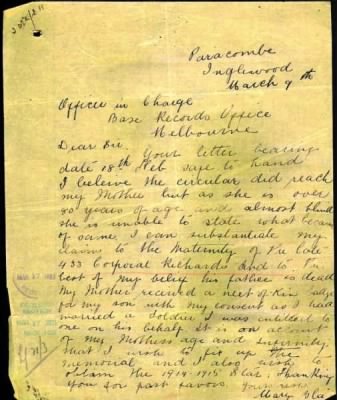 Paracombe
Inglewood
March 9th
Officer in Charge
Base Records Office
Melbourne
Dear Sir. Your letter bearing
date 18th Feb safe to hand
I beleive the circular did reach
my Mother but as she is over
80 years of age and almost blind
she is unable to state what became
of same. I can substantiate my
claim to the Maternity of the late
433 Corporal Richards and to the
best of my belief his father is dead
My Mother received a next of Kin badge
for my son with my consent as I had
married a Soldier I was entitled to
one on his behalf it is on account
of my Mothers age and infirmity
that I wish to get up the
memorial and I also wish to
obtain the 1914-1915 Star, thanking
you for past favors yours
Mary